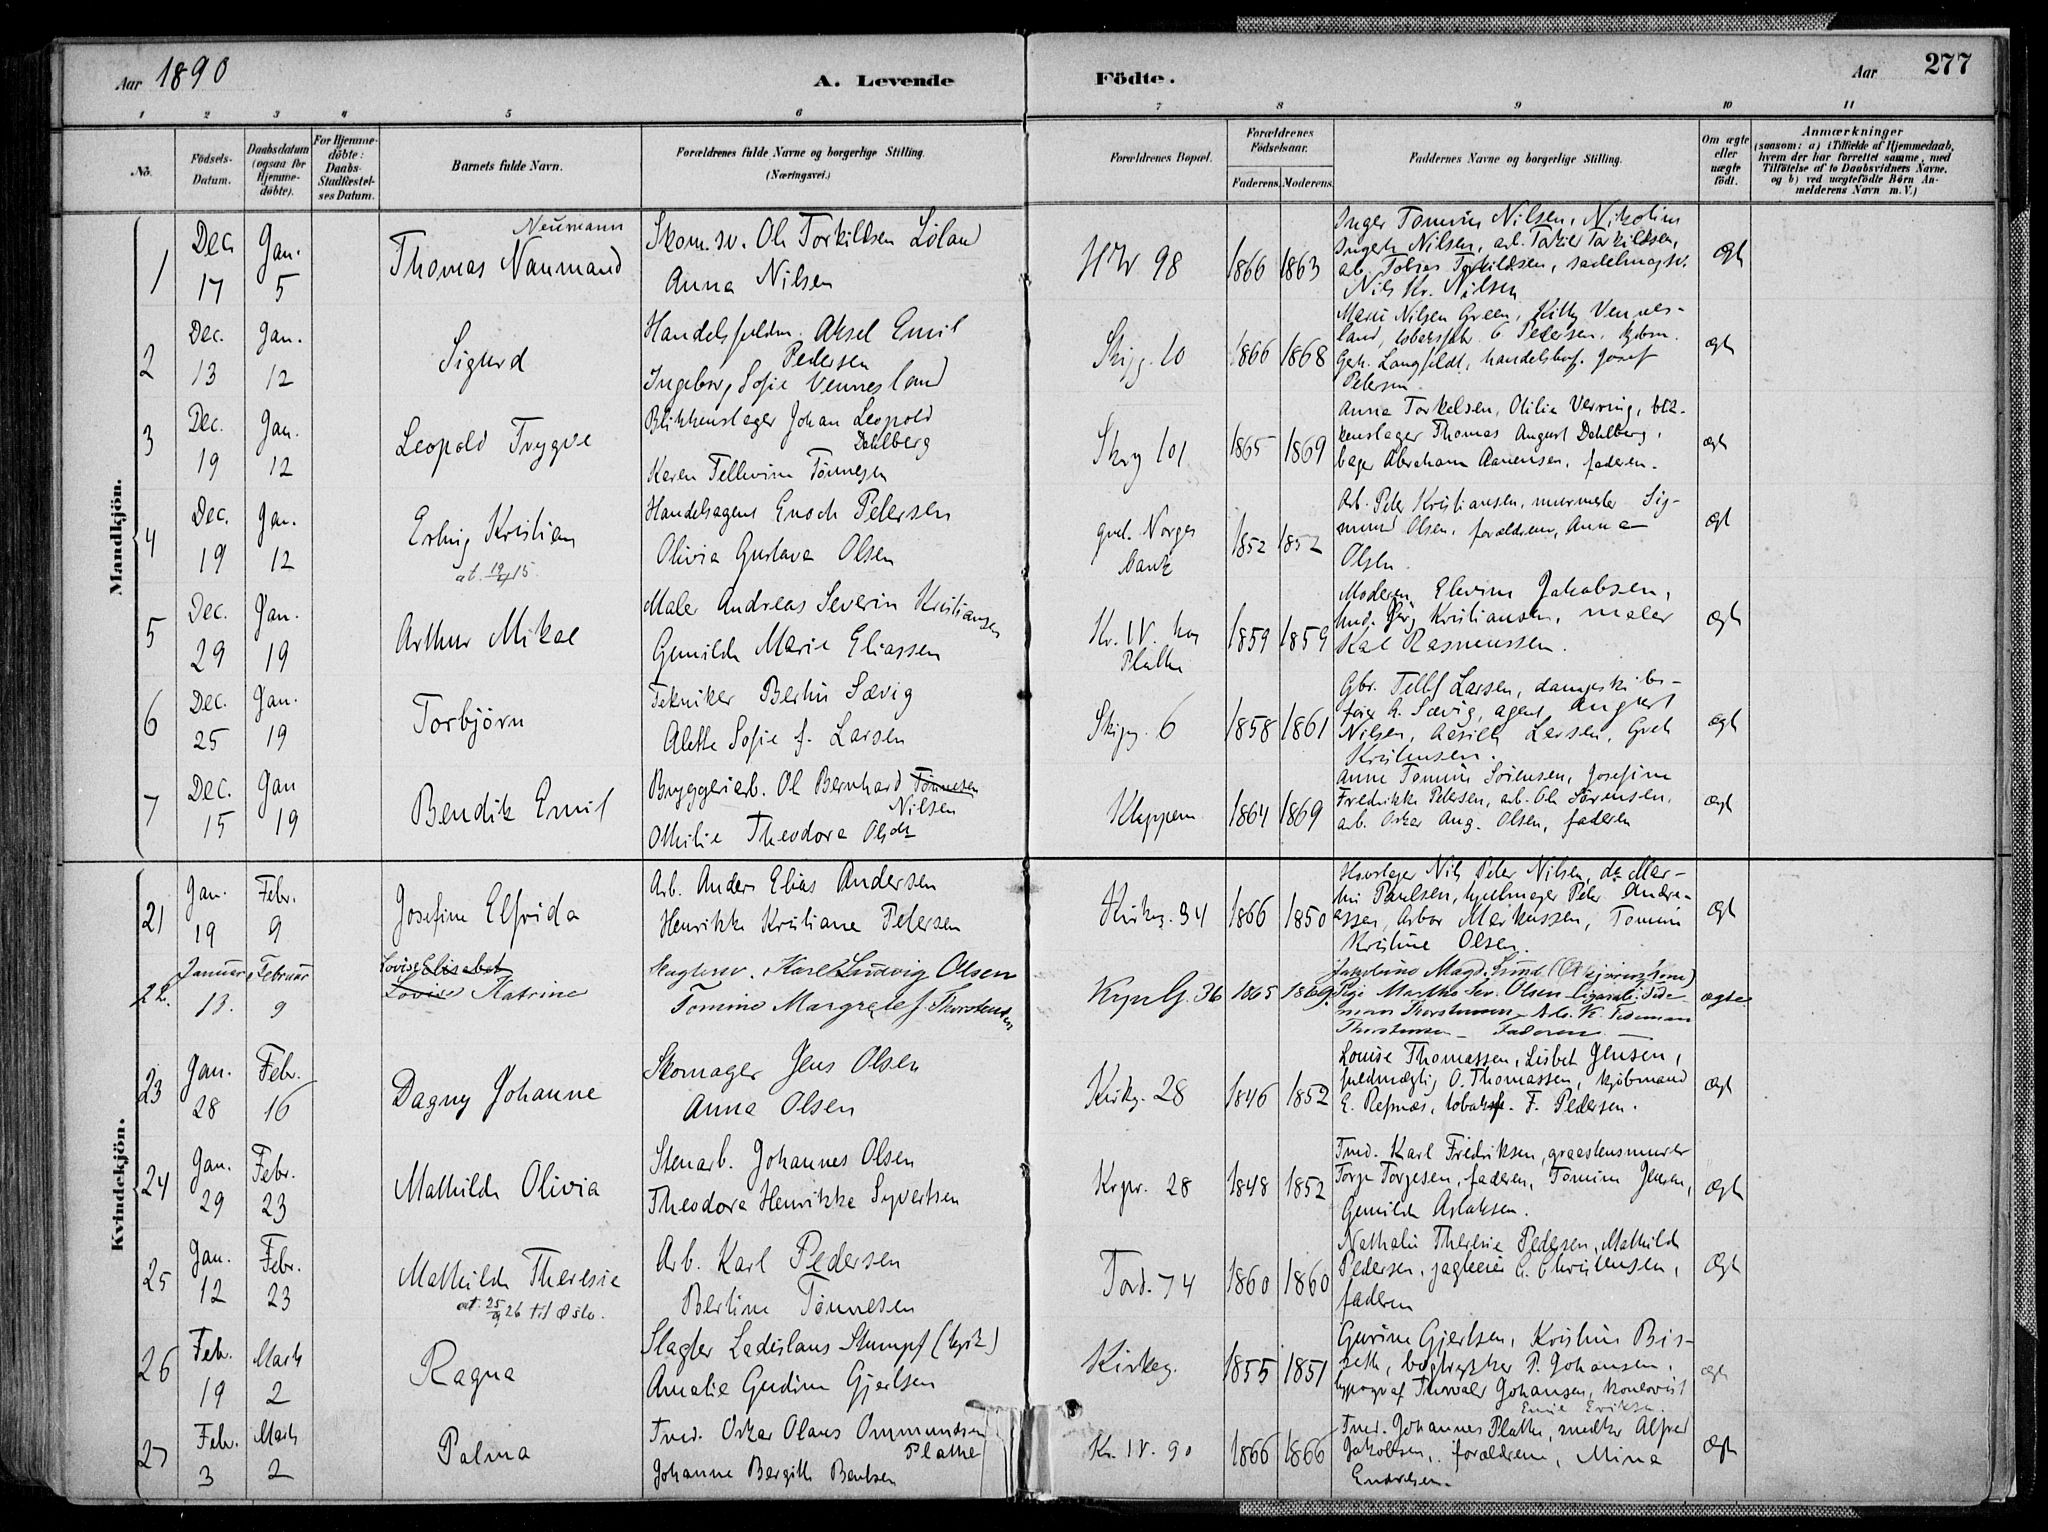 Aar 1890
A. Levende
Födte.
Aar
277
1 2 3 4 5 6 7 8 9 10 11
No.
Födsels-Datum.
Daabsdatum (ogsaa for Hjemmedöbte).
For Hjemmedöbte: Daabs-Stadfæstelses Datum.
Barnets fulde Navn.
Forældrenes fulde Navne og borgerlige Stilling. (Næringsvei.)
Forældrenes Bopæl.
Forældrenes Födselsaar.
Faderens. Moderens.
Faddernes Navne og borgerlige Stilling.
Om ægte eller uægte födt.
Anmærkninger
(saasom: a) i Tilfælde af Hjemmedaab, hvem der har forrettet samme, med Tilföielse af to Daabsvidners Navne, og b) ved uægtefödte Börn Anmelderens Navn m. V.)
Mandkjön.
1
Dec. 17
Jan. 5
Neumann
Thomas Naumand
Skom.sv. Ole Torkildsen Löland
Anna Nilsen
HW 98
1866 1863
Inger Tomine Nilsen, Nikoline
Ingeb. Nilsen, arb. Torkild Torkildsen,
arb. Tobias Torkildsen, sadelmagsv.
Nils Kr. Nilsen
ægte
2
Dec. 13
Jan. 12
Sigurd
Handelsfuldm. Aksel Emil
Pedersen
Ingeborg Sofie Vennesland
Skipg. 10
1866 1868
Marie Nilsen Green, Kitty Vennes-
land, tobaksfabr. O Pedersen, kjøbm.
Langfeldt, handelsbef. Josef
Petersen.
ægte
3
Dec. 19
Jan. 12
Leopold Trygve
Blikkenslager Johan Leopold
Dahlberg
Karen Tellevine Tönnesen
Skog 101
1865 1869
Anna Torkelsen, Otilie Verring, blik-
kenslager Thomas August Dahlberg,
bager Abraham Aanensen, faderen.
ægte
4
Dec. 19
Jan. 12
Erling Kristian
at. 19/4 15.
Handelsagent Enoch Petersen
Olivia Gustava Olsen
Norges
Bank
1852 1852
Arb. Peter Kristiansen, murmester Sig-
mund Olsen, forældrene, Anna
Olsen.
ægt
5
Dec. 29
Jan. 19
Arthur Mikal
Maler Andreas Severin Kristiansen
Gunilde Marie Eliassen
Kr. IV. hos
Plathe
1859 1859
Moderen, Elevine Jakobsen,
Kristiansen, maler
Karl Rasmussen.
ægte
6
Dec. 25
Jan. 19
Torbjörn
Tekniker Bertin Sævig
Alette Sofie f. Larsen
Skipg. 6
1858 1861
Gbr. Tellef Larsen, dampskibs-
fører A. Sævig, agent August
Nilsen, Aasille Larsen, Greth
Kristensen.
ægte
7
Dec. 15
Jan 19
Bendik Emil
Bryggeriarb. Ole Bernhard Tönnesen
Nilsen
Othilie Theodora Olsen
Kleppen
1864 1869
Anne Tomine Sörensen, Josefine
Fredrikke Petersen, arb. Ole Sörensen,
arb. Oskar Aug. Olsen, faderen
ægte
Kvindekjön.
21
Jan. 19
Febr. 9
Josefine Elfrida
Arb. Anders Elias Andersen
Henrikke Kristiane Petersen
Kirkeg. 34
1866 1850
Hovslager Nils Peter Nilsen, do Mar-
tin Paulsen, hjulmager Peter Andre-
assen, Asbor Markussen, Tomine
Kristine Olsen.
ægte
22.
Januar 13.
Februar 9
Lovise Elisabet
Lovise Katrine
Slagtersv. Karl Ludvig Olsen
Tomine Margrete f. Thorstensen
Krpr G. 36
1865 1869.
Josefine Magd. Lund
Pige Martha Sev. Olsen
Faderen
ægte
23
Jan. 28
Febr. 16
Dagny Johanne
Skomager Jens Olsen
Anna Olsen
Kirkeg. 28
1846 1852
Louise Thomassen, Lisbet Jensen,
fuldmægtig O. Thomassen, kjöbmand
E. Refsnæs, F. Pedersen.
ægte
24
Jan. 29
Febr. 23
Mathilde Olivia
Stenarb. Johannes Olsen
Theodora Henrikke Syvertsen
Krpr. 28
1848 1852
Tmd. Karl Fredriksen, graastensmurer
Torje Torgesen, faderen, Tomine Jensen,
Gunilde Aslaksen.
ægte
25
Jan. 12
Febr. 23
Mathilde Theresie
at. 25/9 26 til Oslo.
Arb. Karl Pedersen
Bertine Tönnesen
Tord. 74
1860 1860
Nathalie Theresie Pedersen, Mathilde
Pedersen, Christensen,
faderen
ægte
26
Febr. 19
Marts 2
Ragna
Slagter Ladislaus Stumpf (tysk)
Amalie Gudine Gjertsen
Kirkeg.
1855 1851
Gurine Gjertsen, Kristine Bis-
seth, bogtrykker P. Johansen,
typograf Thorvald Johansen,
Emil Eriksen.
ægte
27
Febr. 3
Marts 2
Palma
Tmd. Oskar Olaus Ommundsen
Plathe
Johanne Bergitte Bentsen
Kr. IV. 90
1866 1866
Tmd. Johannes Plathe, snedker Alfred
Jakobsen, forældrene, Mina
Endresen.
ægte